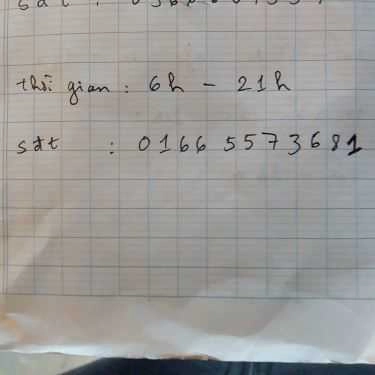 thời gian : 6h - 21h
sđt : 0166 5573681